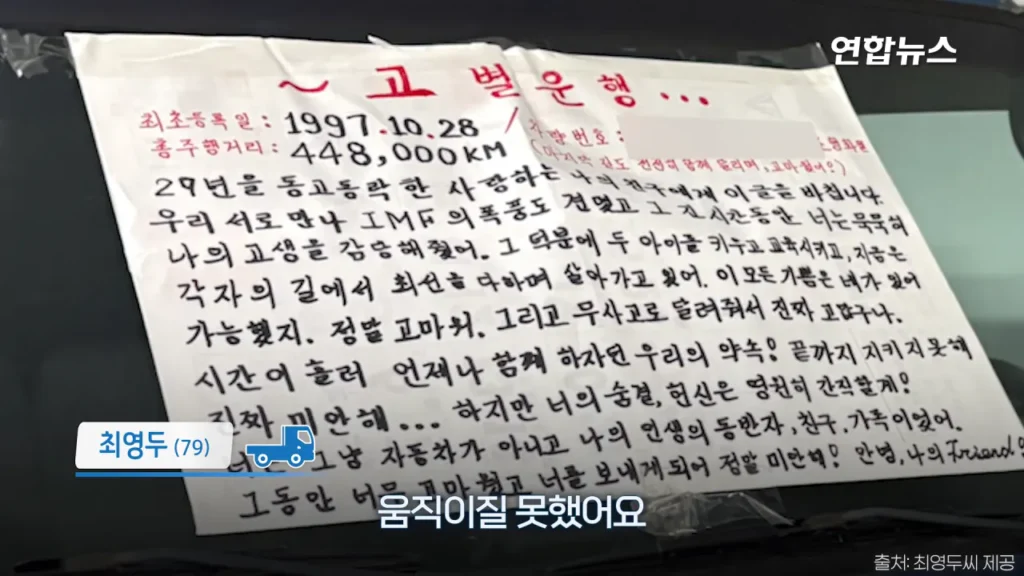 연합뉴스
~ 고 별 운 행 ...
최초등록일 : 1997.10.28 / 차량번호 :
총주행거리 : 448,000KM (마지막 순도 전선의 함께 달리며, 고마웠어?)
29년을 동고동락한 사랑하는 나의 친구에게 이 글을 바칩니다.
우리 서로 만나 IMF의 폭풍도 견뎠고 그 긴 시간동안 너는 묵묵히
나의 고생을 감당해줬어. 그 덕분에 두 아이를 키우고 교육시키고, 지금은
각자의 길에서 최선을 다하며 살아가고 있어. 이 모든 기쁨은 네가 있어
가능했지. 정말 고마워. 그리고 무사고로 달려줘서 진짜 고맙구나.
시간이 흘러 언제나 함께 하자던 우리의 약속! 끝까지 지키지 못해
진짜 미안해... 하지만 너의 숨결, 헌신은 영원히 간직할게!
그냥 자동차가 아니고 나의 인생의 동반자, 친구, 가족이었어.
그동안 너무 고마웠고 너를 보내게 되어 정말 미안해! 안녕, 나의 Friend!
최영두 (79)
움직이질 못했어요
출처: 최영두씨 제공